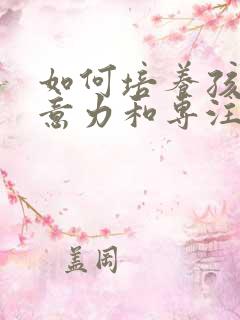 如何培养孩
意力和专注
盖周